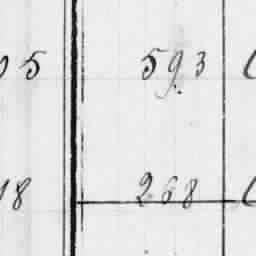 05 593
18 268